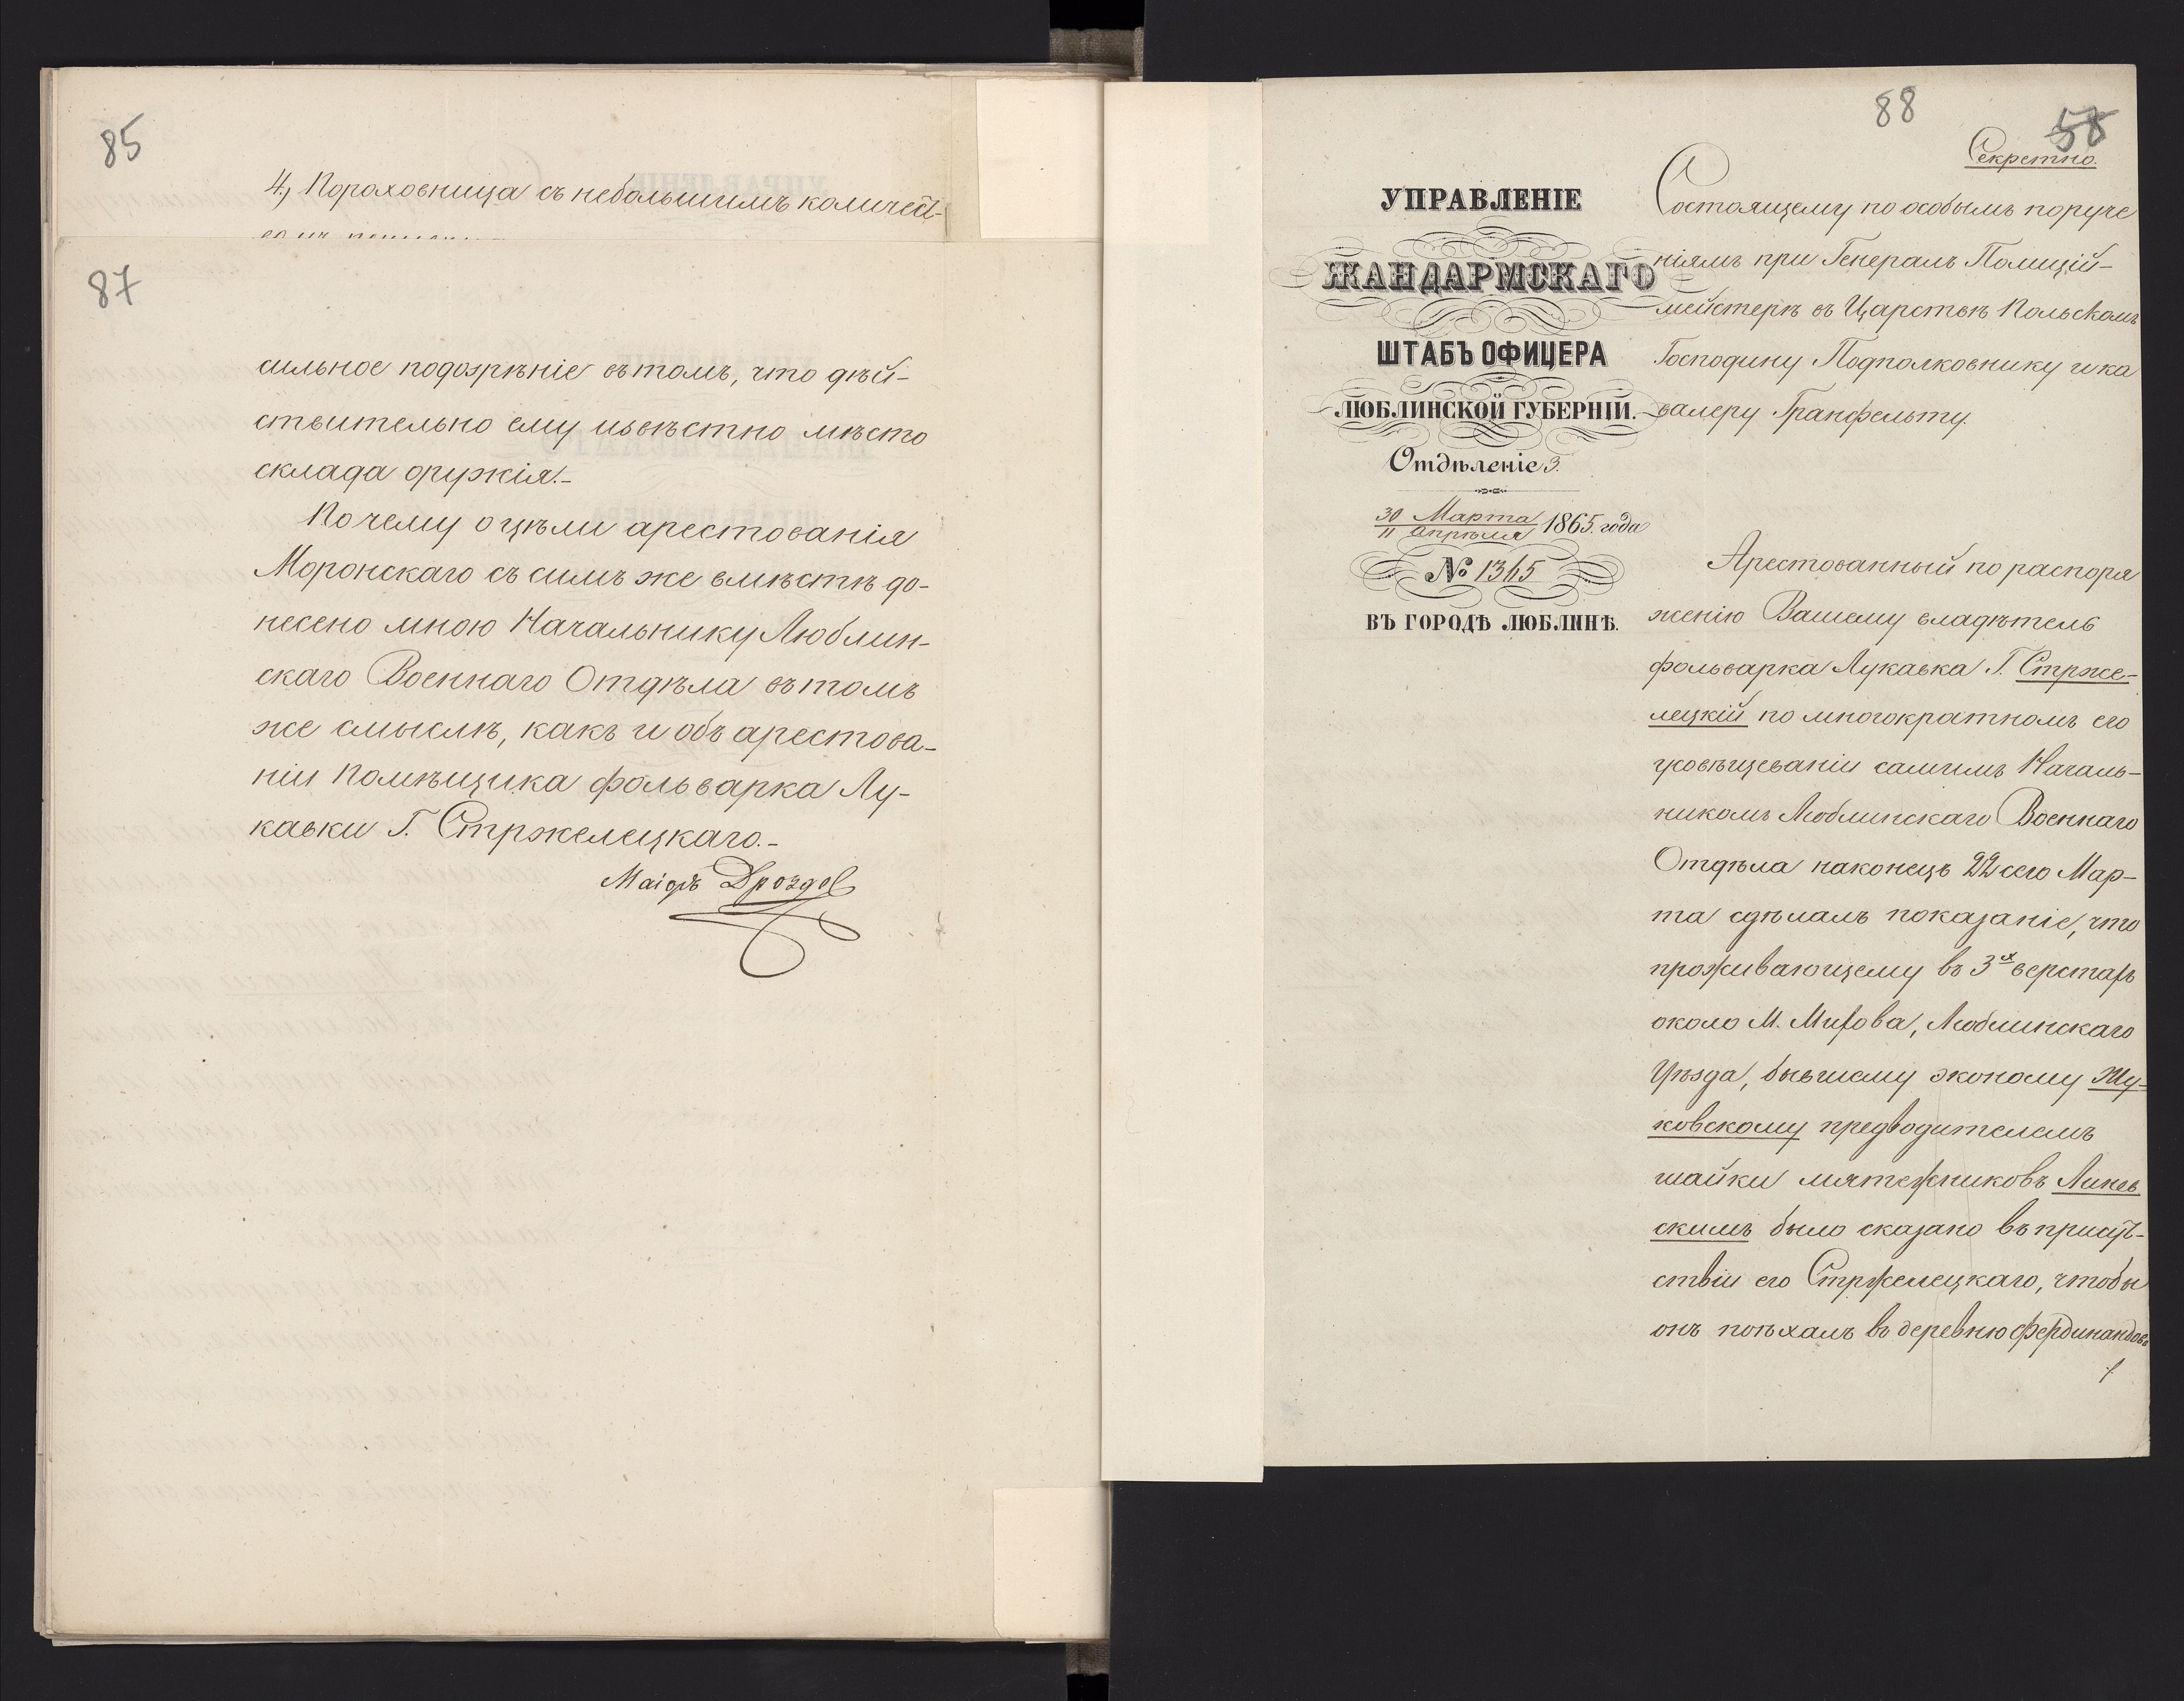 85
4., Пороховница съ небольшимъ количест-
87
сильное подозрѣніе въ томъ, что дѣй-
ствительно ему извѣстно мѣсто
склада оружія.-
Почему о цѣли арестованія
Моронскаго съ симъ же вмѣстѣ до-
несено мною Начальнику Люблин-
скаго Военнаго Отдѣла въ томъ
же смыслѣ, какъ и объ арестова-
ніи Помѣщика фольварка Лу-
кавки Г. Стржелецкаго.-
Маіоръ Дроздов
88
58
Секретно.
УПРАВЛЕНІЕ
ЖАНДАРМСКАГО
ШТАБЪ ОФИЦЕРА
ЛЮБЛИНСКОЙ ГУБЕРНІИ.
Отдѣленіе 3.
30 Марта
11 Апрѣля 1865. года
№ 1365
ВЪ ГОРОДѢ ЛЮБЛИНѢ.
Состоящему по особымъ поруче
ніямъ при Генералъ Полицій-
мейстерѣ въ Царствѣ Польскомъ
Господину Подполковнику и ка
валеру Гранфельту.
Арестованный по распоря
женію Вашему владѣтель
фольварка Лукавка Г. Стрже-
лецкій по многократномъ его
усовѣщеваніи самимъ Началь-
никомъ Люблинскаго Военнаго
Отдѣла наконецъ 22 сего Мар-
та сдѣлалъ показаніе, что
проживающему въ 3х верстахъ
около М. , Люблинскаго
Уѣзда, бывшему эконому Жу-
ковскому предводителемъ
шайки мятежниковъ Линев
скимъ было сказано въ присут-
ствіи его Стржелецкаго, чтобы
онъ поѣхалъ въ деревню Фердинандовъ